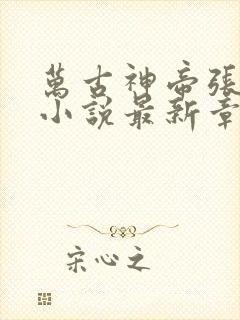 萬古神帝張
小說最新章
宋心之